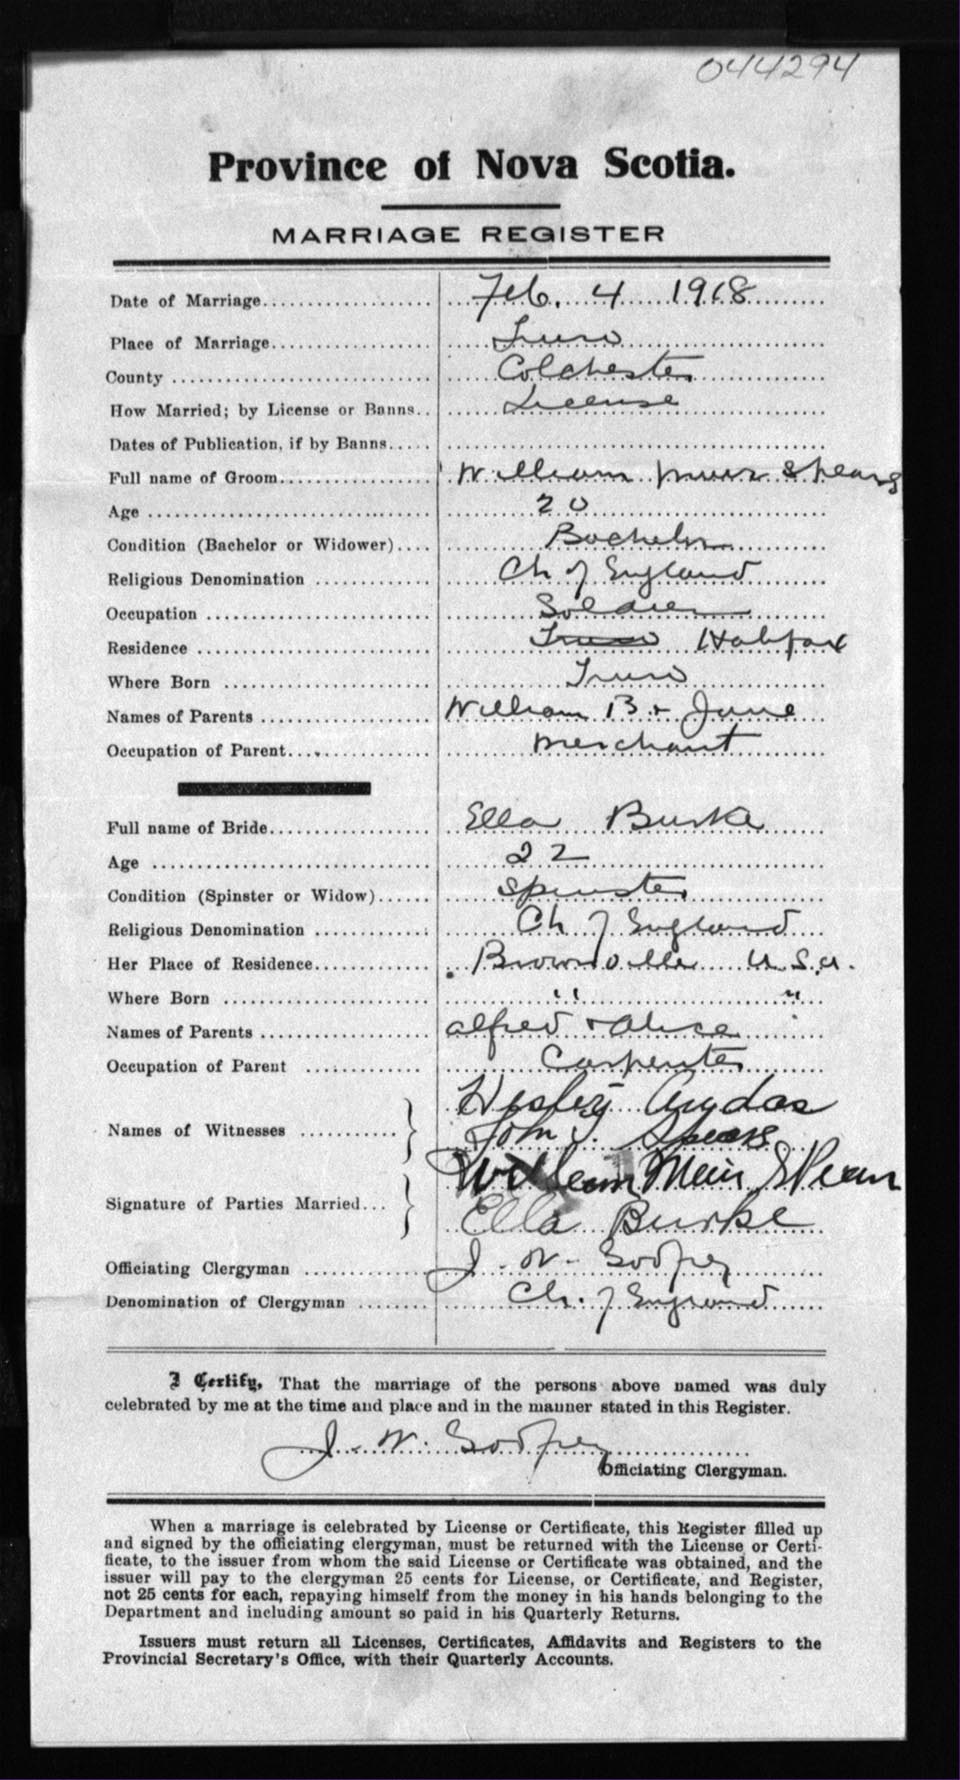 044294
Province of Nova Scotia.
MARRIAGE REGISTER
Date of Marriage.................. Feb. 4 1918
Place of Marriage.................. Truro
County .................. Colchester
How Married; by License or Banns.. License
Dates of Publication, if by Banns.....
Full name of Groom.................. William Muir Spears
Age .................. 20
Condition (Bachelor or Widower).... Bachelor
Religious Denomination ............ Ch of England
Occupation .................. Soldier
Residence .................. Truro Halifax
Where Born .................. Truro
Names of Parents .................. William B + Jane
Occupation of Parent.................. Merchant
Full name of Bride.................. Ella Burke
Age .................. 22
Condition (Spinster or Widow)...... Spinster
Religious Denomination ............ Ch of England
Her Place of Residence............ Brownville U.S.A.
Where Born .................. " "
Names of Parents .................. Alfred + Alice
Occupation of Parent ............ Carpenter
Wesley
Names of Witnesses ...........
John J. Spears
William Muir Spears
Signature of Parties Married...
Ella Burke
Officiating Clergyman ............ J. W. Godfrey
Denomination of Clergyman ........ Ch. of England
I Certify, That the marriage of the persons above named was duly
celebrated by me at the time and place and in the manner stated in this Register.
J. W. Godfrey
Officiating Clergyman.
When a marriage is celebrated by License or Certificate, this Register filled up
and signed by the officiating clergyman, must be returned with the License or Certi-
ficate, to the issuer from whom the said License or Certificate was obtained, and the
issuer will pay to the clergyman 25 cents for License, or Certificate, and Register,
not 25 cents for each, repaying himself from the money in his hands belonging to the
Department and including amount so paid in his Quarterly Returns.
Issuers must return all Licenses, Certificates, Affidavits and Registers to the
Provincial Secretary's Office, with their Quarterly Accounts.